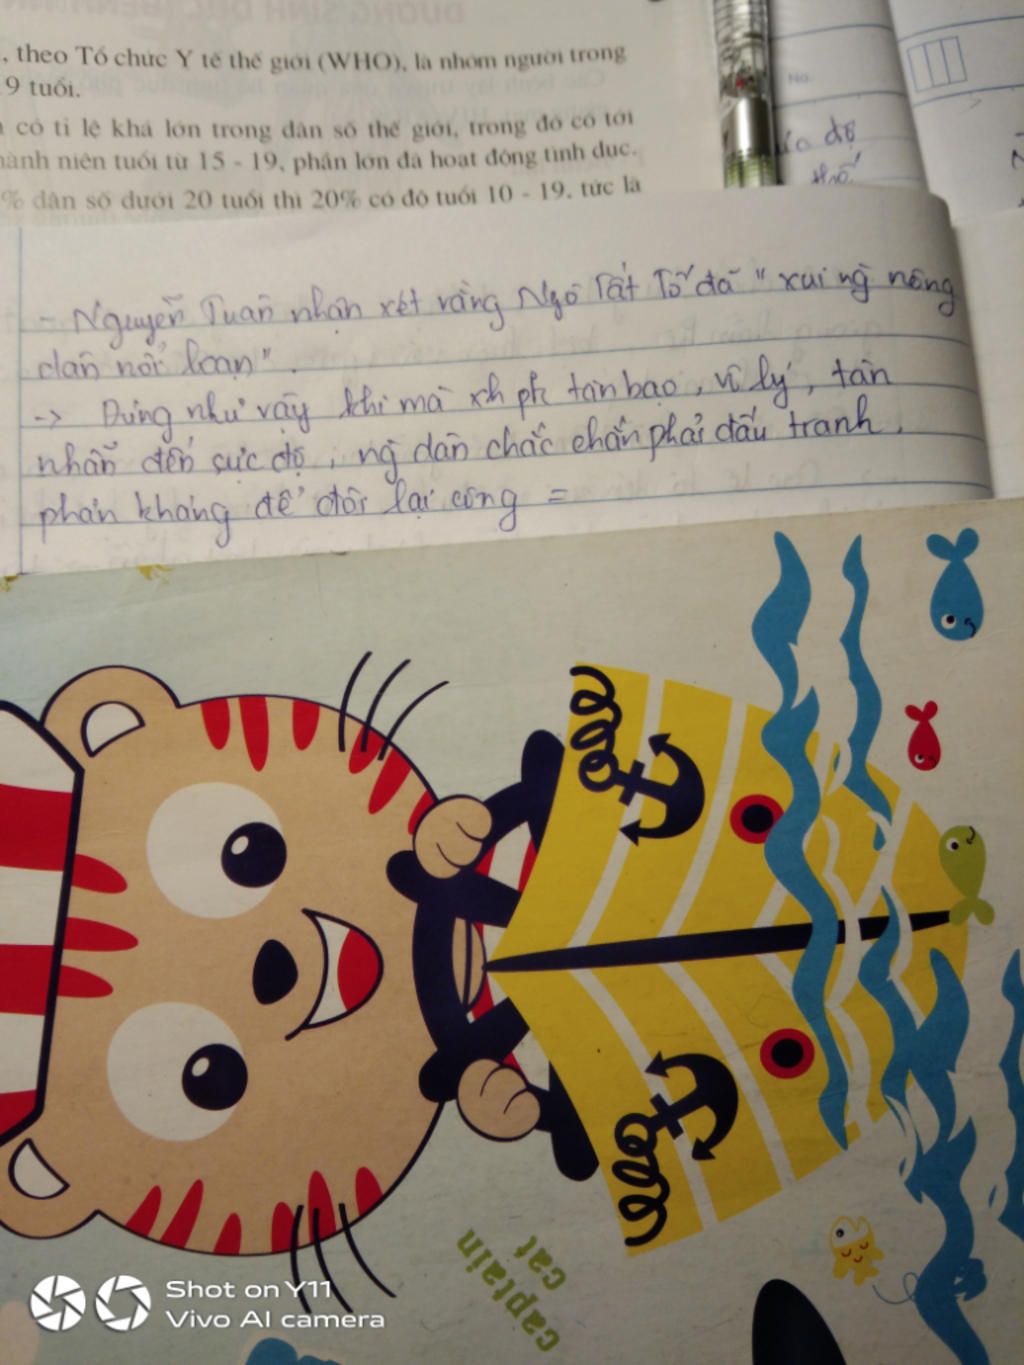 , theo Tổ chức Y tế thế giới (WHO), là nhóm người trong
9 tuổi.
có tỉ lệ khá lớn trong dân số thế giới, trong đó có tới
hành niên tuổi từ 15 - 19, phần lớn đã hoạt động tình dục.
% dân số dưới 20 tuổi thì 20% có độ tuổi 10 - 19. tức là
No.
độ
- Nguyễn Tuân nhận xét rằng Ngô Tất Tố đã " xui ng̀ nông
dân nổi loạn".
-> Đúng như vậy khi mà xh pk tàn bạo, vô lý, tàn
nhẫn đến cực độ, ng̀ dân chắc chắn phải đấu tranh,
phản kháng để đòi lại công =
captain
cat
Shot on Y11
Vivo AI camera